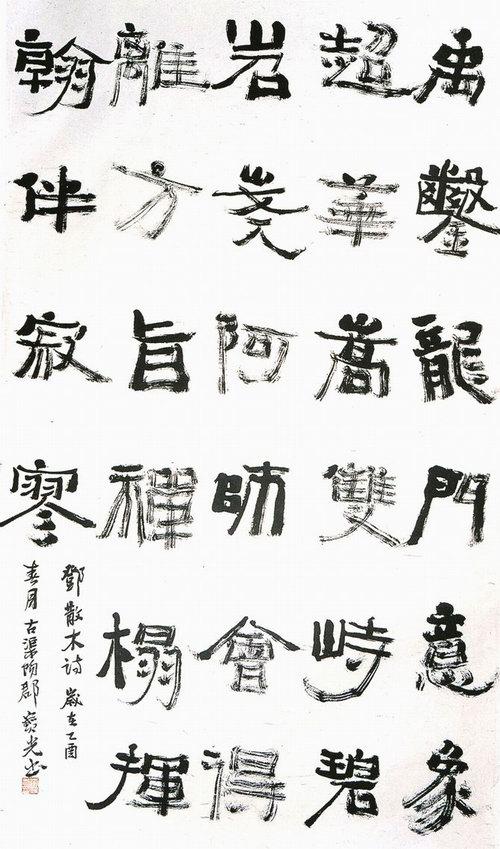 禹鑿龍門意象
超華嵩雙峙碧
岩峣阿師會得
離方旨禪榻揮
翰伴寂寥
鄧散木詩 歲在乙酉
春月古渠陽光书